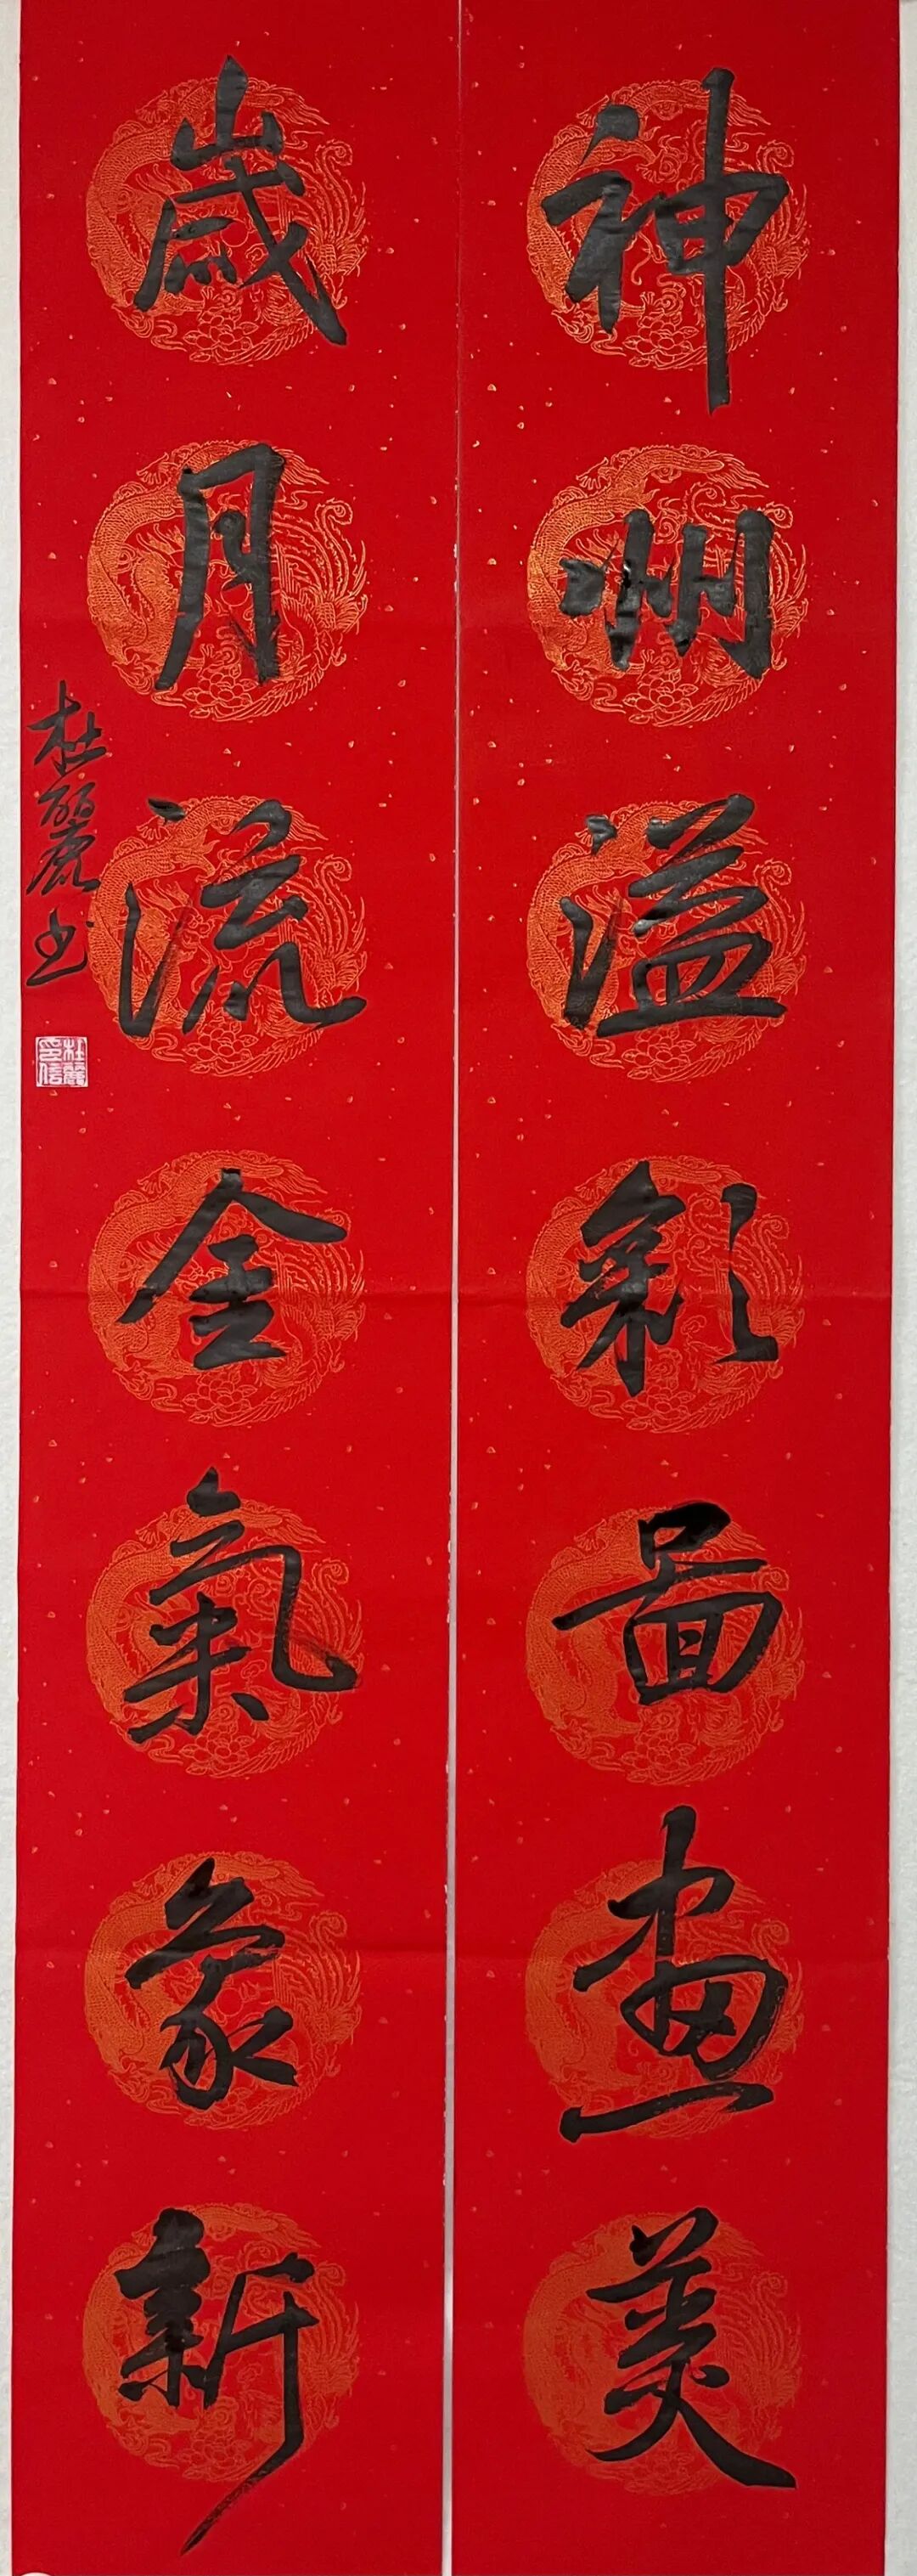 神州溢彩圖畫美
歲月流金氣象新
杜麗書
杜麗信印